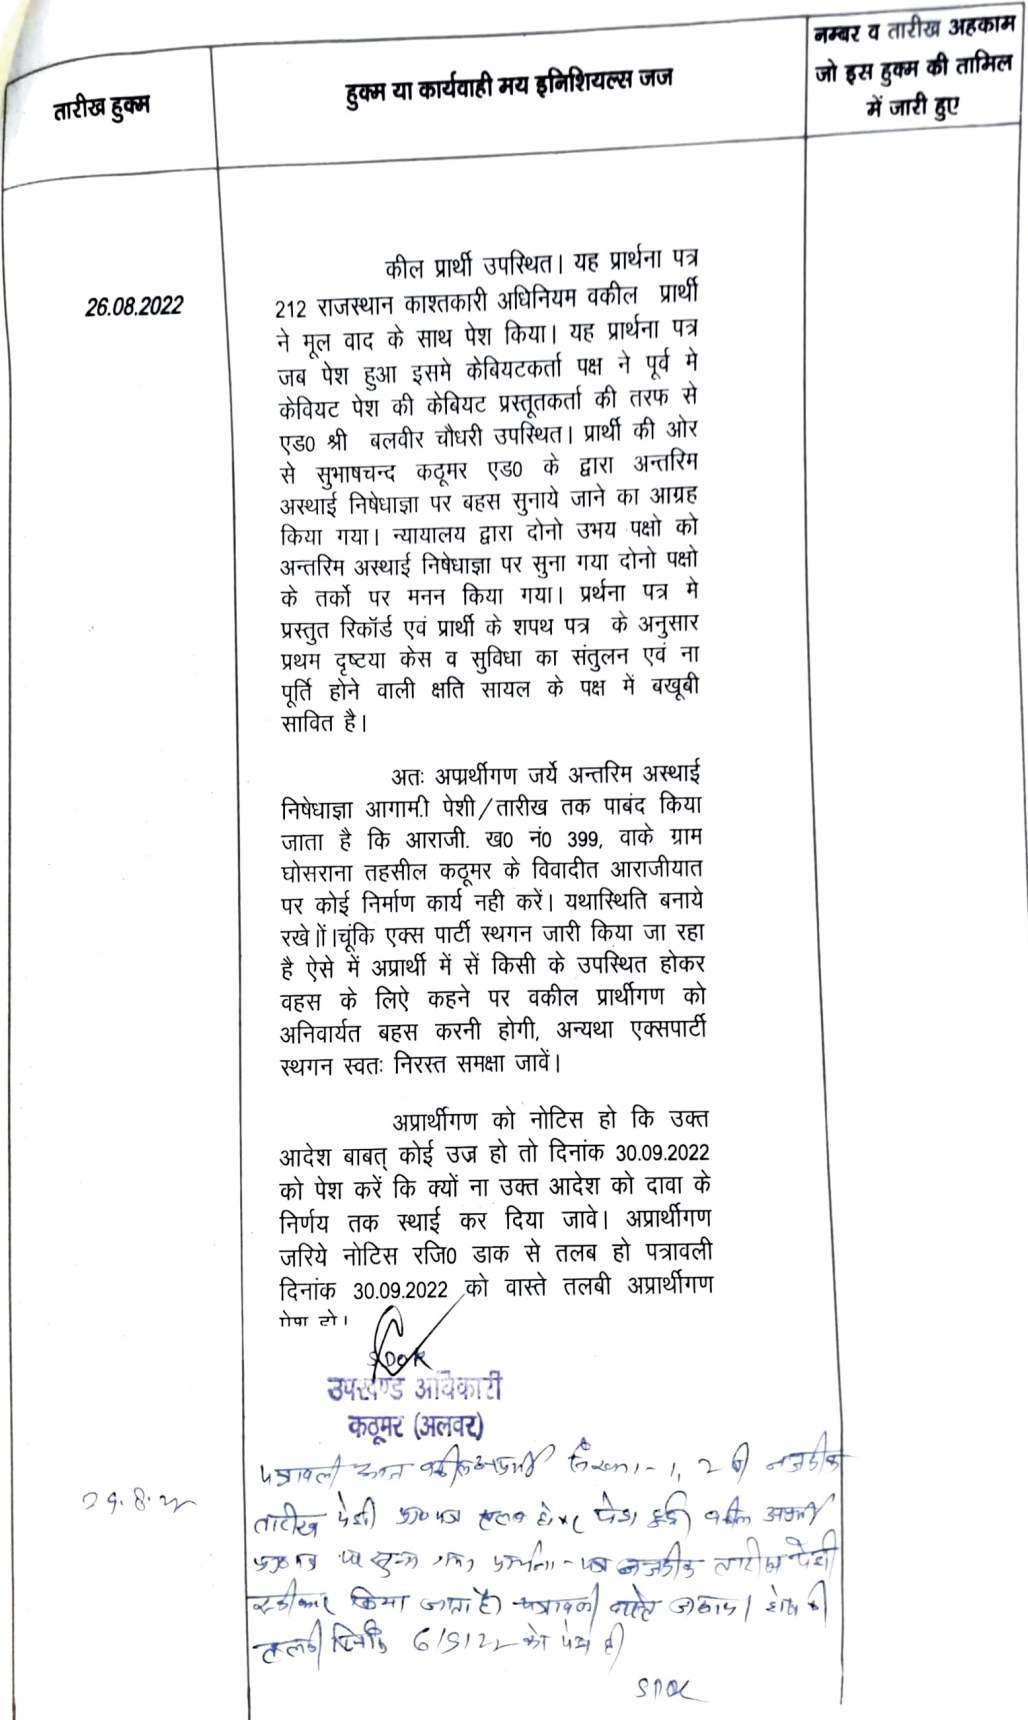 तारीख हुक्म
हुक्म या कार्यवाही मय इनिशियल्स जज
नम्बर व तारीख अहकाम
जो इस हुक्म की तामिल
में जारी हुए
26.08.2022
कील प्रार्थी उपस्थित। यह प्रार्थना पत्र
212 राजस्थान काश्तकारी अधिनियम वकील प्रार्थी
ने मूल वाद के साथ पेश किया। यह प्रार्थना पत्र
जब पेश हुआ इसमे केबियटकर्ता पक्ष ने पूर्व मे
केवियट पेश की केबियट प्रस्तूतकर्ता की तरफ से
एड0 श्री बलवीर चौधरी उपस्थित। प्रार्थी की ओर
से सुभाषचन्द कठूमर एड0 के द्वारा अन्तरिम
अस्थाई निषेधाज्ञा पर बहस सुनाये जाने का आग्रह
किया गया। न्यायालय द्वारा दोनो उभय पक्षो को
अन्तरिम अस्थाई निषेधाज्ञा पर सुना गया दोनो पक्षो
के तर्को पर मनन किया गया। प्रर्थना पत्र मे
प्रस्तुत रिकॉर्ड एवं प्रार्थी के शपथ पत्र के अनुसार
प्रथम दृष्टया केस व सुविधा का संतुलन एवं ना
पूर्ति होने वाली क्षति सायल के पक्ष में बखूबी
सावित है।
अतः अप्रर्थीगण जर्ये अन्तरिम अस्थाई
निषेधाज्ञा आगामी पेशी/तारीख तक पाबंद किया
जाता है कि आराजी. ख0 नं0 399, वाके ग्राम
घोसराना तहसील कठूमर के विवादीत आराजीयात
पर कोई निर्माण कार्य नही करें। यथास्थिति बनाये
रखे।ों।चूंकि एक्स पार्टी स्थगन जारी किया जा रहा
है ऐसे में अप्रार्थी में सें किसी के उपस्थित होकर
वहस के लिऐ कहने पर वकील प्रार्थीगण को
अनिवार्यत बहस करनी होगी, अन्यथा एक्सपार्टी
स्थगन स्वतः निरस्त समक्षा जावें।
अप्रार्थीगण को नोटिस हो कि उक्त
आदेश बाबत् कोई उज्र हो तो दिनांक 30.09.2022
को पेश करें कि क्यों ना उक्त आदेश को दावा के
निर्णय तक स्थाई कर दिया जावे। अप्रार्थीगण
जरिये नोटिस रजि0 डाक से तलब हो पत्रावली
दिनांक 30.09.2022 को वास्ते तलबी अप्रार्थीगण
पेश हो।
उपखण्ड अधिकारी
कठूमर (अलवर)
29.8.22
पत्रावली आज 1, 2 नजदीक
तारीख पेशी तलब होकर पेश हुई वकील
पर सुना गया प्रार्थना-पत्र नजदीक तारीख पेशी
स्वीकार किया जाता है। पत्रावली वास्ते जवाब।
तलबी दिनांक 6/9/22 को पेश हो